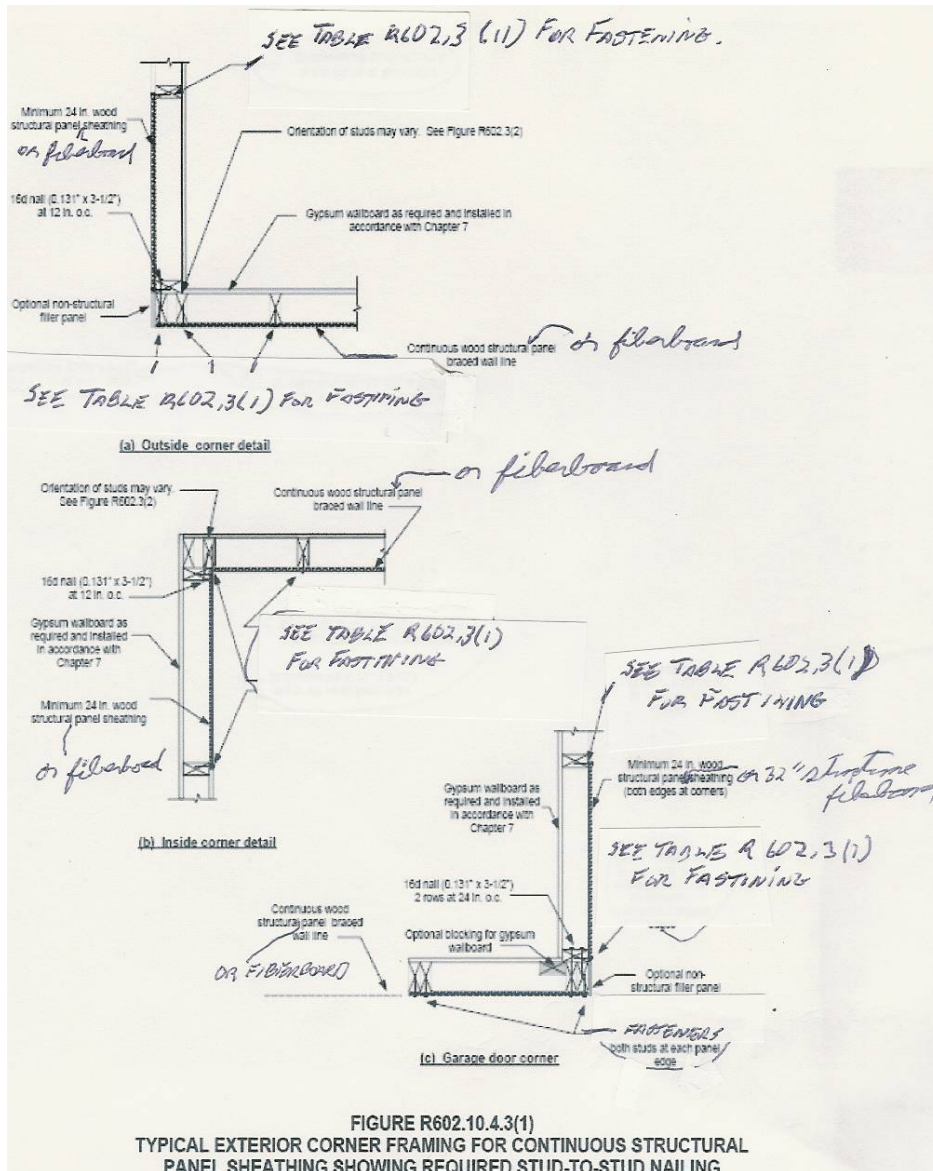 SEE TABLE R602,3 (11) FOR FASTENING.
Minimum 24 in. wood
structural panel sheathing
or fiberboard
Orientation of studs may vary. See Figure R602.3(2)
16d nail (0.131" x 3-1/2")
at 12 in. o.c.
Gypsum wallboard as required and installed in
accordance with Chapter 7
Optional non-structural
filler panel
Continuous wood structural panel
braced wall line
or fiberboard
SEE TABLE R602,3(1) FOR FASTINING
(a) Outside corner detail
or fiberboard
Orientation of studs may vary.
See Figure R602.3(2)
Continuous wood structural panel
braced wall line
16d nail (0.131" x 3-1/2")
at 12 in. o.c.
Gypsum wallboard as
required and installed
in accordance with
Chapter 7
SEE TABLE R602,3(1)
FOR FASTINING
Minimum 24 in. wood
structural panel sheathing
or fiberboard
(b) Inside corner detail
SEE TABLE R602,3(1)
FOR FASTINING
Minimum 24 in. wood
structural panel sheathing
(both edges at corners)
or 32" structure
fiberboard
Gypsum wallboard as
required and installed
in accordance with
Chapter 7
SEE TABLE R602,3(1)
FOR FASTINING
16d nail (0.131" x 3-1/2")
2 rows at 24 in. o.c.
Continuous wood
structural panel braced
wall line
OR FIBERBOARD
Optional blocking for gypsum
wallboard
Optional non-
structural filler panel
FASTENERS
both studs at each panel
edge
(c) Garage door corner
FIGURE R602.10.4.3(1)
TYPICAL EXTERIOR CORNER FRAMING FOR CONTINUOUS STRUCTURAL
PANEL SHEATHING SHOWING REQUIRED STUD-TO-STUD NAILING